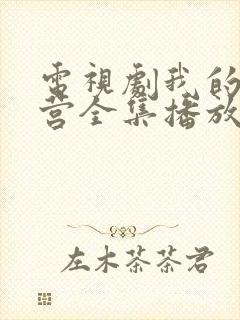 電視劇我的
営全集播放
左木茶茶君